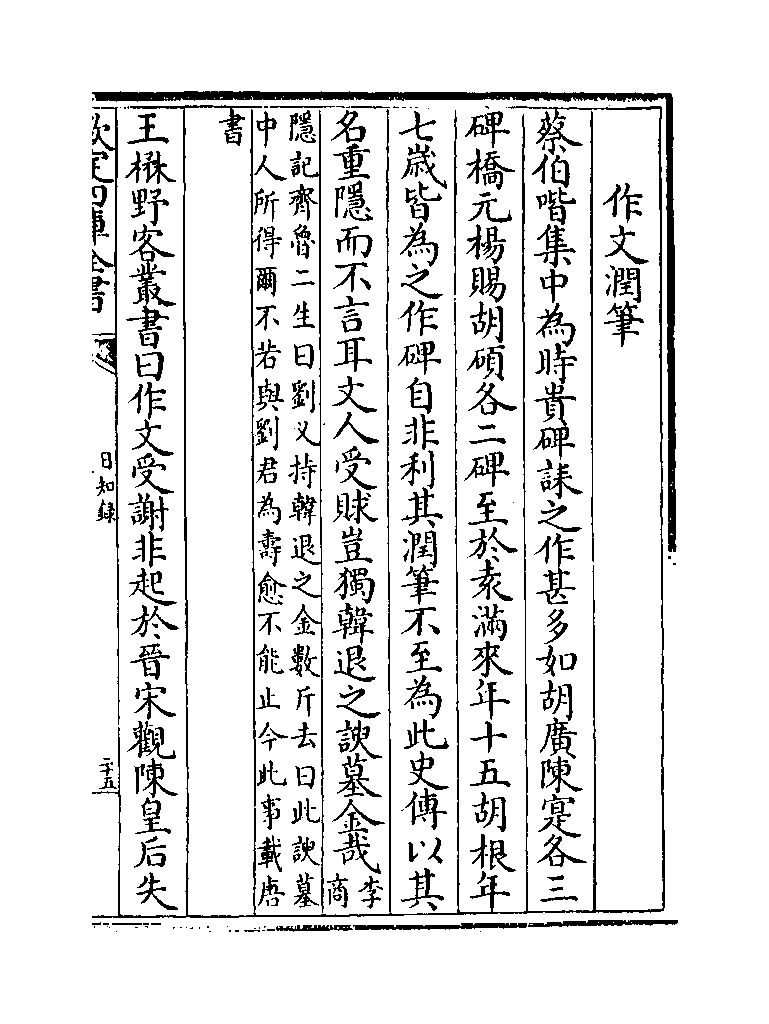 作文潤筆
蔡伯喈集中為時貴碑誄之作甚多如胡廣陳寔各三
碑橋元楊賜胡碩各二碑至於袁滿來年十五胡根年
七歲皆為之作碑自非利其潤筆不至為此史傳以其
名重隱而不言耳文人受賕豈獨韓退之諛墓金哉李商
隱記齊魯二生曰劉乂持韓退之金數斤去曰此諛墓
中人所得爾不若與劉君為壽愈不能止今此事載唐
書
王楙野客叢書曰作文受謝非起於晉宋觀陳皇后失
欽定四庫全書
日知錄
二十五